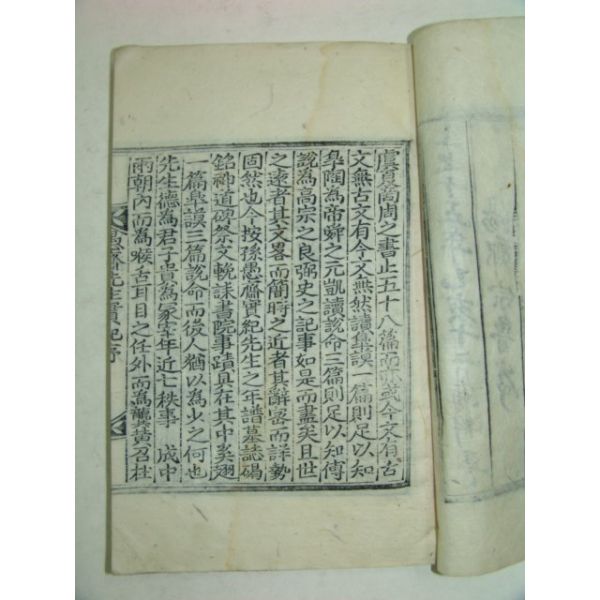 虞夏商周之書止五十八篇而或今文有古
文無古文有今文無然讀皐謨一篇則足以知
皐陶為帝舜之元凱讀說命三篇則足以知傅
說為高宗之良弼史之記事如是而盡矣且世
之遠者其文畧而簡時之近者其辭密而詳勢
固然也今按孫愚齋實紀先生之年譜墓誌碣
銘神道碑祭文輓誄書院事蹟具在其中奚翅
一篇皐謨三篇說命而後人猶以為少之何也
先生德為君子貴為冢宰年近亡秩事 成中
兩朝內而為喉舌耳目之任外而為龔黃召杜
愚齋先生實紀序